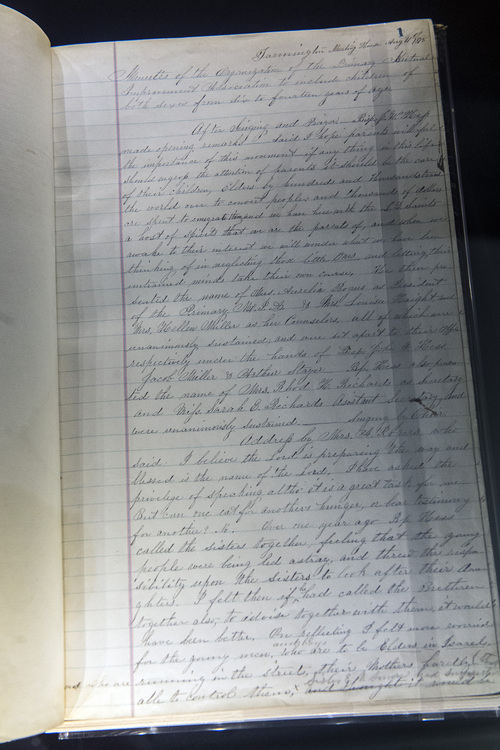 1
Farmington Meeting House Aug
Minutes of the Organization of the Primary Mutual
Improvement Association to include children of
both sexes from six to fourteen years of age.
After Singing and Prayer Bishop Hess
made opening remarks, said I hope parents will feel
the importance of this movement if any thing in this life
should engross the attention of parents it should be the care
of their children, Elders by hundreds and thousands
the world over to convert peoples and thousands of dollars
are spent to and we have here with the Saints
a host of spirits that we are the parents of, and when we
awake to their interest we will wonder what we have been
thinking of in neglecting these little ones and letting their
untrained minds take their own course. He then pre-
sented the name of Mrs. Aurelia Rogers as President
of the Primary M. I. A. & Mrs. Louisa Haight and
Mrs. Hellen Miller as her Counselors all of whom were
unanimously sustained, and were set apart to their office
respectively under the hands of Bishop John W. Hess
Jacob Miller & Arther Stayer Bp. Hess also presen-
ted the name of Mrs. Rhod H. Richards as Secretary
and Miss Sarah E. Richards Assistant Secretary, and
were unanimously sustained Singing by Choir
Address by Mrs. A. Rogers who
said I believe the Lord is preparing the way and
blessed is the name of the Lord, I have asked the
privilege of speaking altho it is a great task for me
But can one eat for another's hunger, or bear testimony
for another? No. Over one year ago Bp. Hess
called the Sisters together, feeling that the young
people were being led astray, and threw the respon-
sibility upon the Sisters to look after their dau-
ghters. I felt then if he had called the Brethren
together also, to advise together with them, it would
have been better. On reflecting I felt more worried
for the young men, and boys who are to be Elders in Israel,
and who are running in the street, their Mothers hardly
able to control them, and thought it would